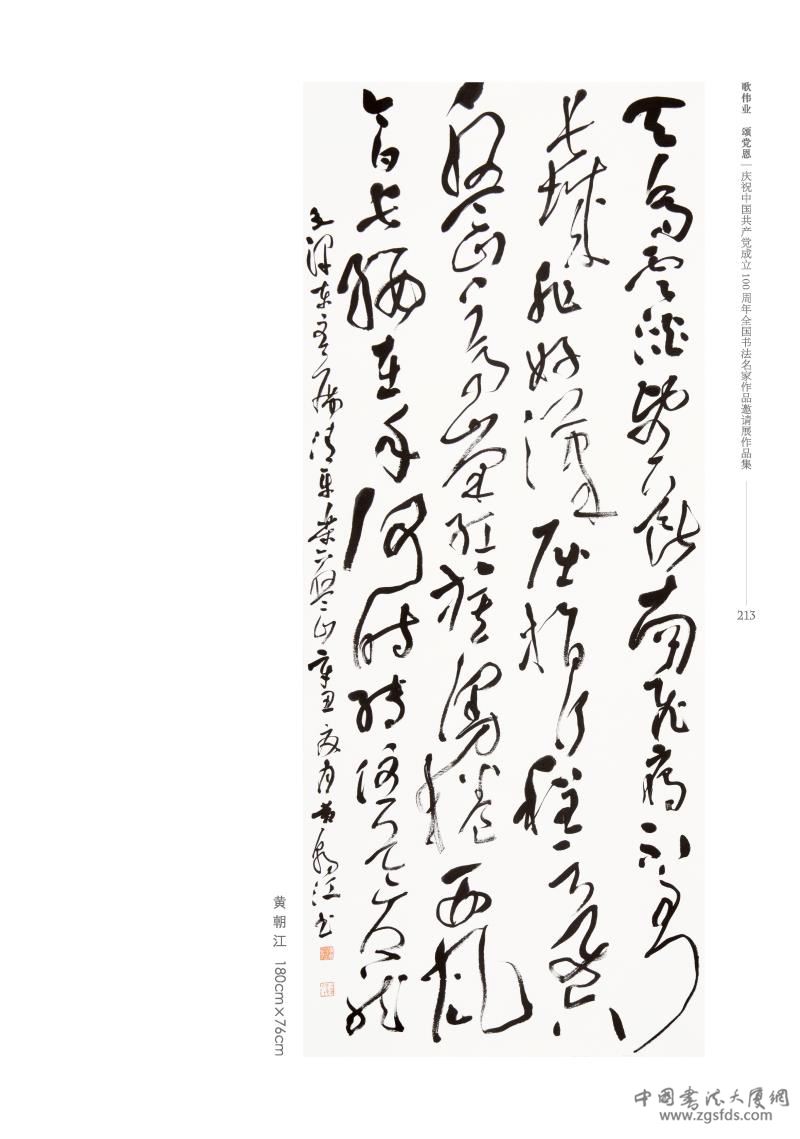 歌伟业 颂党恩 | 庆祝中国共产党成立100周年全国书法名家作品邀请展作品集
213
天高雲淡望斷南飛雁不到
長城非好漢屈指行程二萬六
盤山上高峰紅旗漫捲西風
今日長纓在手何時縛住蒼龍
毛澤東主席清平樂六盤山辛丑夏月黃朝江書
黄朝江 180cm×76cm
中国书法大厦網
www.zgsfds.com